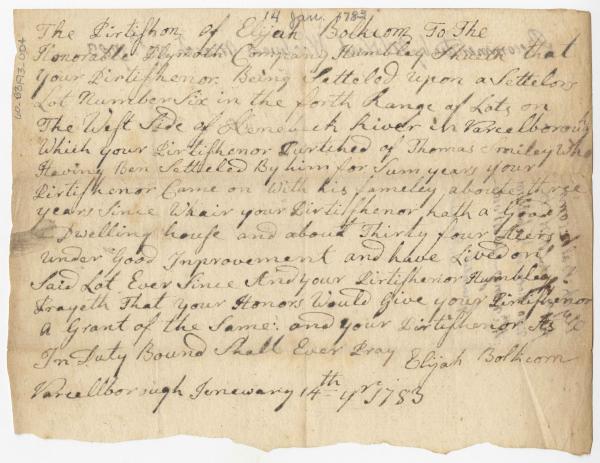 14 Jan. 1783
The Pirtishon of Elijah Bolkcom To The
Honorable Plymoth Company Humbley Sheweth that
your Pirtishenor Being Setteled upon a Settelors
Lot Number Six in the forth Range of Lots on
The West Side of Kenebeck River in Varcelborough
Which your Pirtishenor Purtched of Thomas Smiley Who
Having Ben Setteled By him for Sum years your
Pirtishenor Came on With his fameley aboute three
years Since Whair your Pirtishenor hath a Good
Dwelling house and about Thirty four Akers
under Good Inprovement and have Lived on
Said Lot Ever Since And your Pirtishenor Humbley
Prayeth That your Honors Would Give your Pirtishenor
A Grant of the Same: and your Pirtishenor As
In Duty Bound Shall Ever Pray
Elijah Bolkcom
Varcellborough Jenewary 14th yr 1783